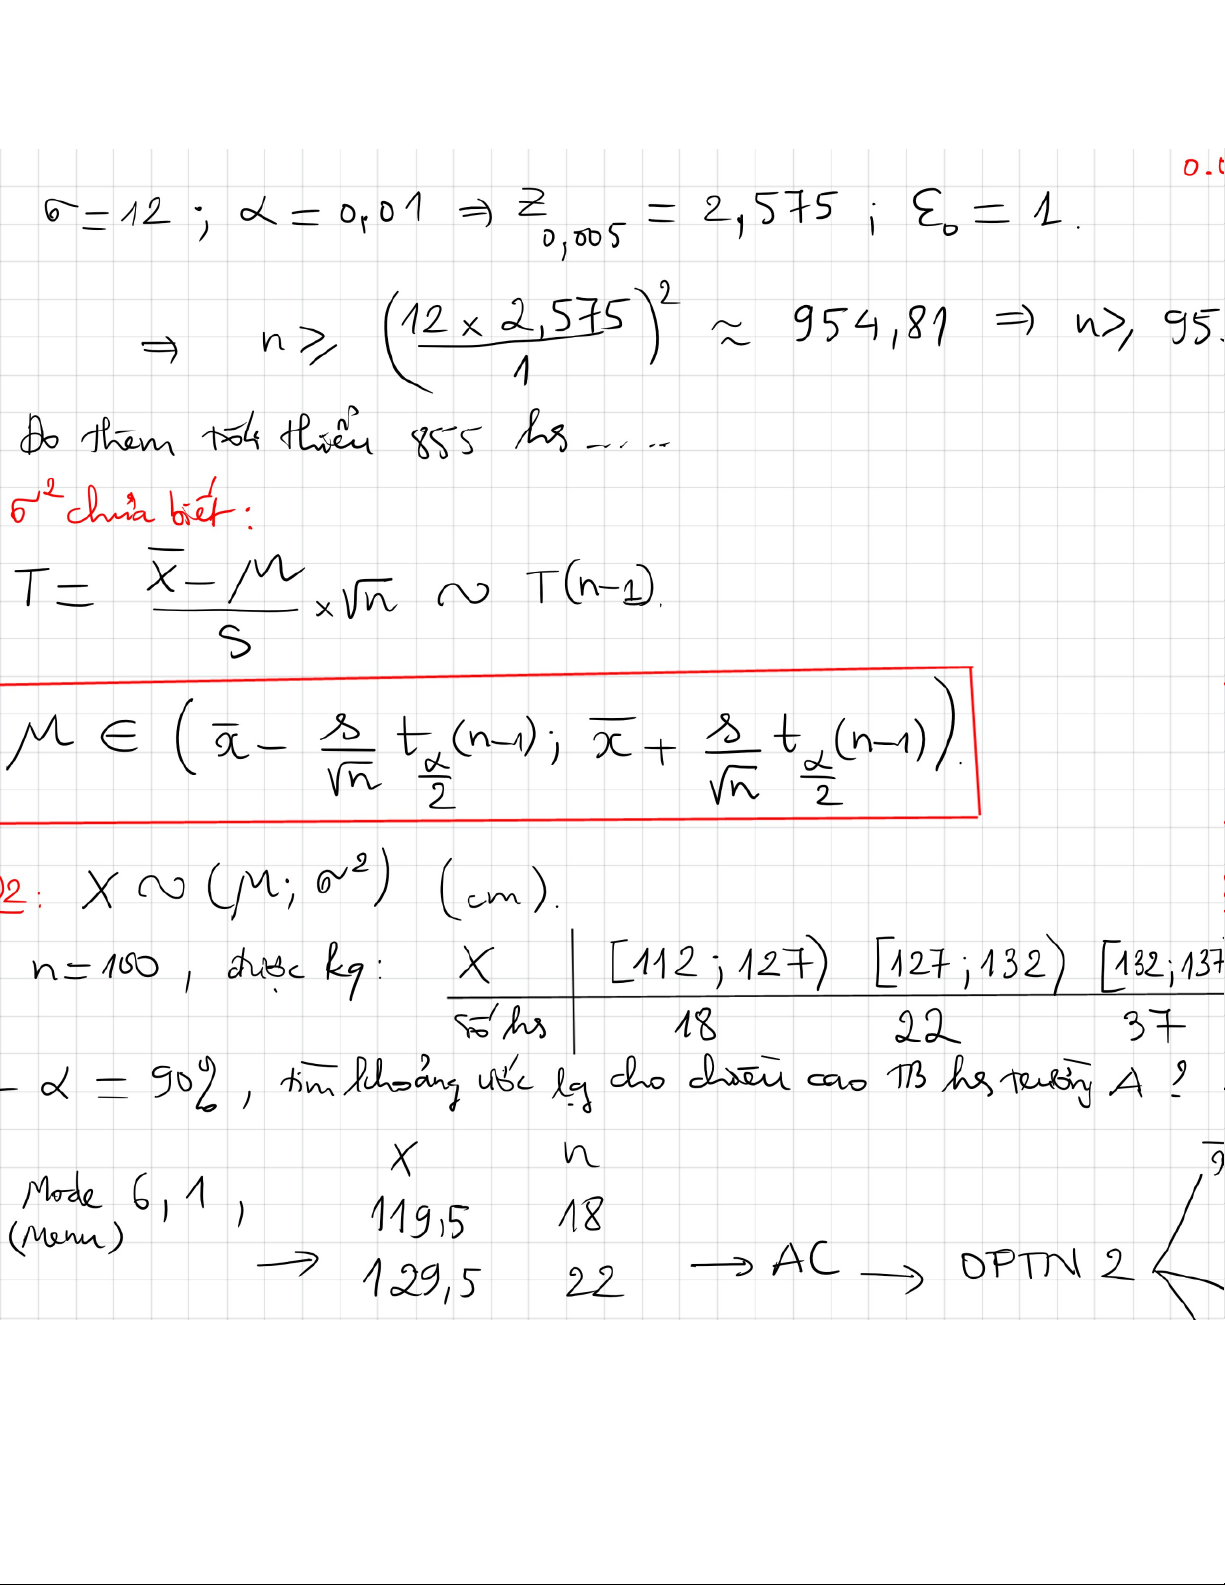 0.0
σ = 12 ; α = 0,01 ⇒ Z_{0,005} = 2,575 ; ε₀ = 1.
⇒ n ⩾ (12 × 2,575 / 1)² ≈ 954,81 ⇒ n ⩾ 95
Đo thêm tối thiểu 855 hs .....
σ² chưa biết:
T = (X̄ − μ)/S × √n ∼ T(n−1).
μ ∈ (x̄ − s/√n t_{α/2}(n−1) ; x̄ + s/√n t_{α/2}(n−1)).
2: X ∼ (μ; σ²) (cm).
n = 100 , được kq: X | [112 ; 127) [127 ; 132) [132 ; 137
số hs | 18 22 37
− α = 90% , tìm khoảng ước lg cho chiều cao TB hs trường A ?
X n
Mode 6, 1 , 119,5 18
(Menu) → 129,5 22 → AC → OPTN 2